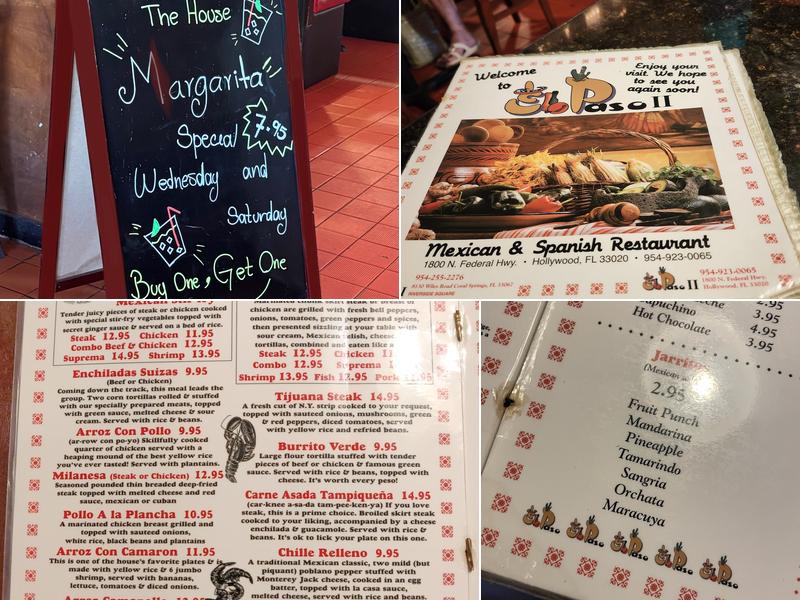 The House
Margarita
Special 7.95
Wednesday and
Saturday
Buy One, Get One
Welcome
to
El Paso II
Enjoy your
visit. We hope
to see you
again soon!
Mexican & Spanish Restaurant
1800 N. Federal Hwy. • Hollywood, FL 33020 • 954-923-0065
954-255-2276
8130 Wiles Road Coral Springs, FL 33067
RIVERSIDE SQUARE
El Paso II
954-923-0065
1800 N. Federal Hwy.
Hollywood, FL 33020
Mexican Stir
Tender juicy pieces of steak or chicken cooked
with special stir-fry vegetables topped with
secret ginger sauce & served on a bed of rice.
Steak 12.95 Chicken 11.95
Combo Beef & Chicken 12.95
Suprema 14.95 Shrimp 13.95
Enchiladas Suizas 9.95
(Beef or Chicken)
Coming down the track, this meal leads the
group. Two corn tortillas rolled & stuffed
with our specially prepared meats, topped
with green sauce, melted cheese & sour
cream. Served with rice & beans.
Arroz Con Pollo 9.95
(ar-row con po-yo) Skillfully cooked
quarter of chicken served with a
heaping mound of the best yellow rice
you've ever tasted! Served with plantains.
Milanesa (Steak or Chicken) 12.95
Seasoned pounded thin breaded deep-fried
steak topped with melted cheese and red
sauce, mexican or cuban
Pollo A la Plancha 10.95
A marinated chicken breast grilled and
topped with sauteed onions,
white rice, black beans and plantains
Arroz Con Camaron 11.95
This is one of the house's favorite plates & is
made with yellow rice & 6 jumbo
shrimp, served with bananas,
lettuce, tomatoes & diced onions.
Marinated chunk skirt steak or breast of
chicken are grilled with fresh bell peppers,
onions, tomatoes, green peppers and spices,
then presented sizzling at your table with
sour cream, Mexican relish, cheese,
tortillas, combined and eaten like a
Steak 12.95 Chicken
Combo 12.95 Suprema
Shrimp 13.95 Fish 12.95 Pork 12.95
Tijuana Steak 14.95
A fresh cut of N.Y. strip cooked to your request,
topped with sauted onions, mushrooms, green
& red peppers, diced tomatoes, served
with yellow rice and refried beans.
Burrito Verde 9.95
Large flour tortilla stuffed with tender
pieces of beef or chicken & famous green
sauce. Served with rice & beans, topped with
cheese. It's worth every peso!
Carne Asada Tampiqueña 14.95
(car-knee a-sa-da tam-pee-ken-ya) If you love
steak, this is a prime choice. Broiled skirt steak
cooked to your liking, accompanied by a cheese
enchilada & guacamole. Served with rice &
beans. It's ok to lick your plate on this one.
Chille Relleno 9.95
A traditional Mexican classic, two mild (but
piquant) poblano pepper stuffed with
Monterey Jack cheese, cooked in an egg
batter, topped with la casa sauce,
melted cheese, served with rice and beans.
2.95
3.95
Hot Chocolate 4.95
3.95
Jarritos
(Mexican
2.95
Fruit Punch
Mandarina
Pineapple
Tamarindo
Sangria
Orchata
Maracuya
El Paso El Paso El Paso El Paso El Paso